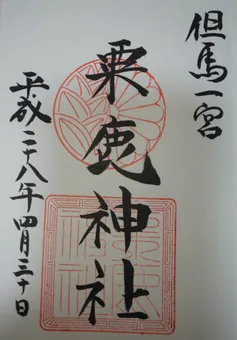 但馬一宮
粟鹿神社
平成二十八年四月三十日